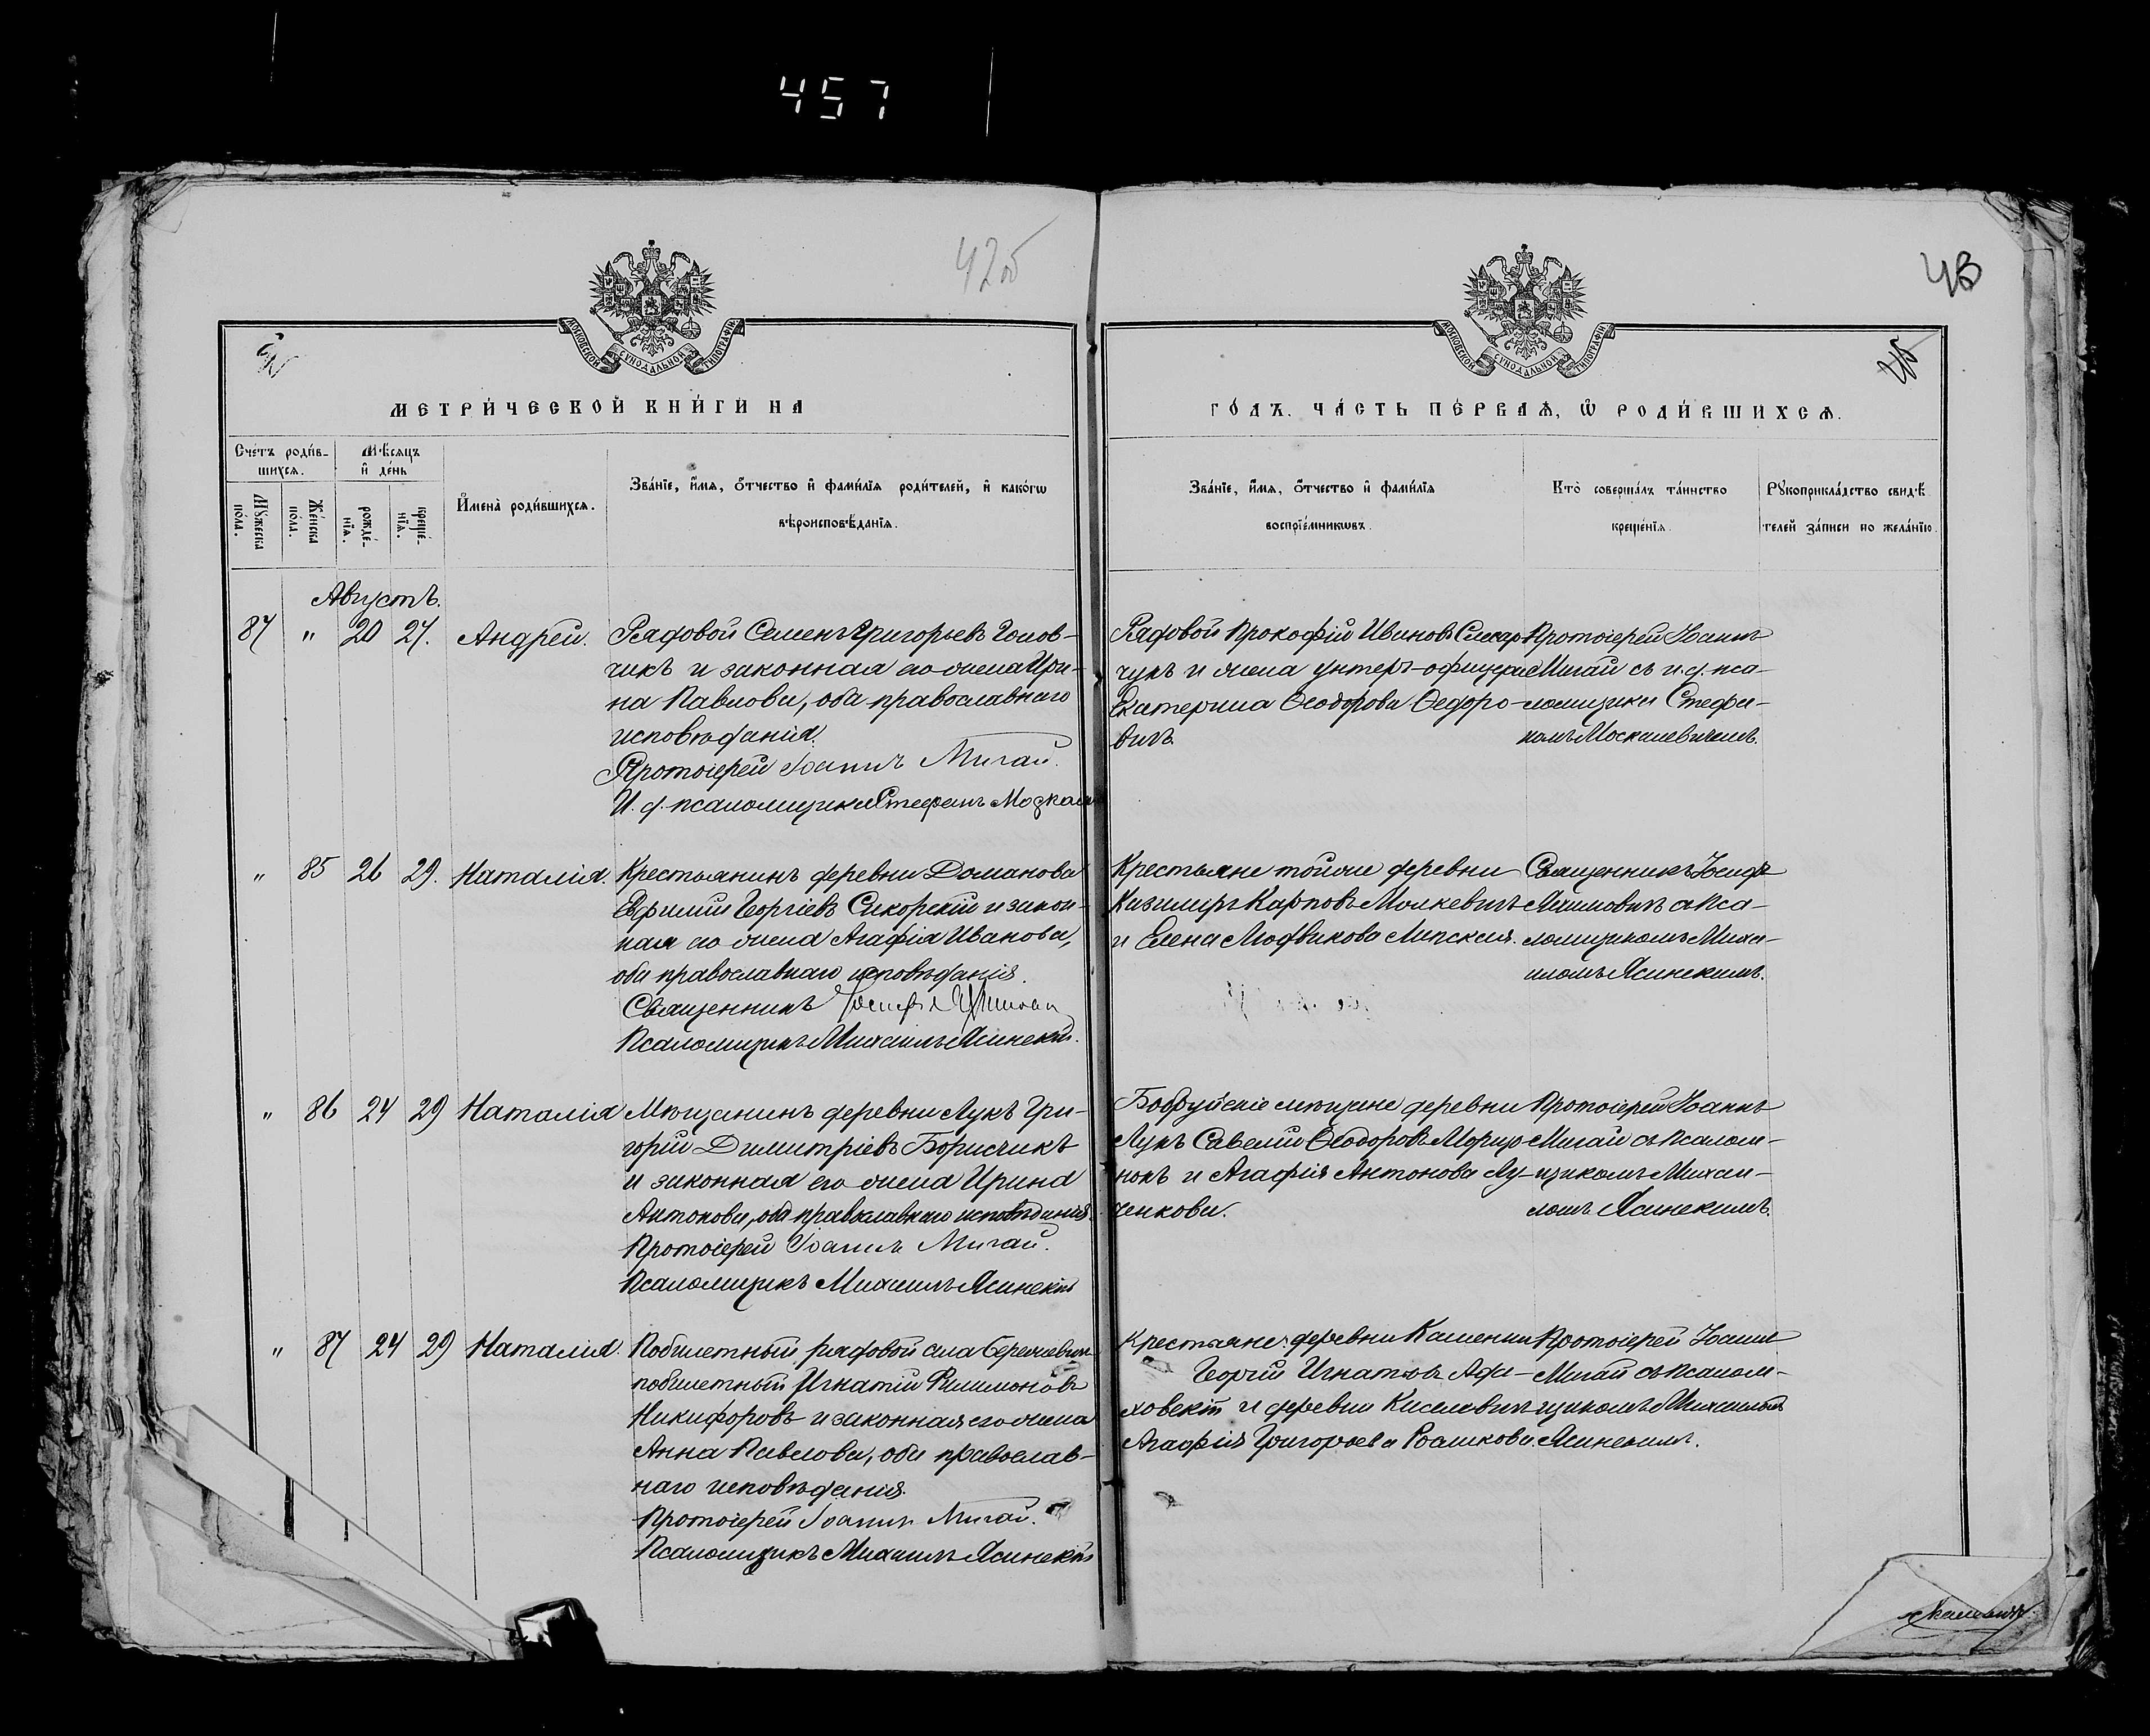 457
42об
43
МОСКОВСКОЙ СУНОДАЛЬНОЙ ТИПОГРАФІИ
МОСКОВСКОЙ СУНОДАЛЬНОЙ ТИПОГРАФІИ
МЕТРИ́ЧЕСКОЙ КНИ́ГИ НА
ГО́ДЪ, ЧА́СТЬ ПЕ́РВАѦ, Ѿ РОДИ́ВШИХСѦ.
Счетъ роди́в-
шихсѧ.
Мѣсяцъ
и҆ де́нь
Мꙋжеска
по́ла.
Же́нска
по́ла.
рожде́-
нїѧ.
креще́-
нїѧ.
И҆мена̀ роди́вшихсѧ.
Зва́нїе, и҆́мѧ, ѻ҆́тчество и҆ фами́лїѧ роди́телей, и҆ како́гѡ
вѣроисповѣ́данїѧ.
Зва́нїе, и҆́мѧ, ѻ҆́тчество и҆ фами́лїѧ
воспрїе́мникѡвъ.
Кто̀ соверша́лъ та́инство
креще́нїѧ.
Рꙋкоприкла́дство свидѣ́-
телей за́писи по жела́нїю.
Августъ.
87 " 20 27. Андрей. Рядовой Семенъ Григорьевъ Голов-
чикъ и законная его жена Ири-
на Павлова, оба православнаго
исповѣданія.
Протоіерей Іоаннъ Мигай.
И. д. псаломщика Стефанъ
Рядовой Прокофій Ивановъ
чукъ и жена унтеръ-офицера
Екатерина Ѳеодорова Ѳедоро-
вичъ.
Протоіерей Іоаннъ
Мигай съ и. д. пса-
ломщика Стефа-
номъ Москалевичемъ.
" 85 26 29. Наталія. Крестьянинъ деревни Доманова
Евфимій Георгіевъ Сикорскій и закон-
ная его жена Агафія Иванова,
оба православнаго исповѣданія.
Священникъ Іосифъ
Псаломщикъ Михаилъ Ясинскій.
Крестьяне тойже деревни
Казиміръ Карповъ Молкевичъ
и Елена Людвикова Липская.
Священникъ Іосифъ
съ пса-
ломщикомъ Миха-
иломъ Ясинскимъ.
" 86 24 29 Наталія Мѣщанинъ деревни Лукъ Гри-
горій Димитріевъ Борисчикъ
и законная его жена Ирина
Антонова, оба православнаго исповѣданія.
Протоіерей Іоаннъ Мигай.
Псаломщикъ Михаилъ Ясинскій
Бобруйскіе мѣщане деревни
Лукъ Савелій Ѳеодоровъ
нокъ и Агафія Антонова Лу-
ченкова.
Протоіерей Іоаннъ
Мигай съ псалом-
щикомъ Михаи-
ломъ Ясинскимъ.
" 87 24 29 Наталія. Побилетный рядовой села
побилетный Игнатій Филимоновъ
Никифоровъ и законная его жена
Анна Павлова, оба православ-
наго исповѣданія.
Протоіерей Іоаннъ Мигай.
Псаломщикъ Михаилъ Ясинскій
Крестьяне: деревни Каменки
Георгій Игнатовъ Ада-
ховскій и деревни Киселевичъ
Агафія Григорьева Рошкова.
Протоіерей Іоаннъ
Мигай съ псалом-
щикомъ Михаиломъ
Ясинскимъ.